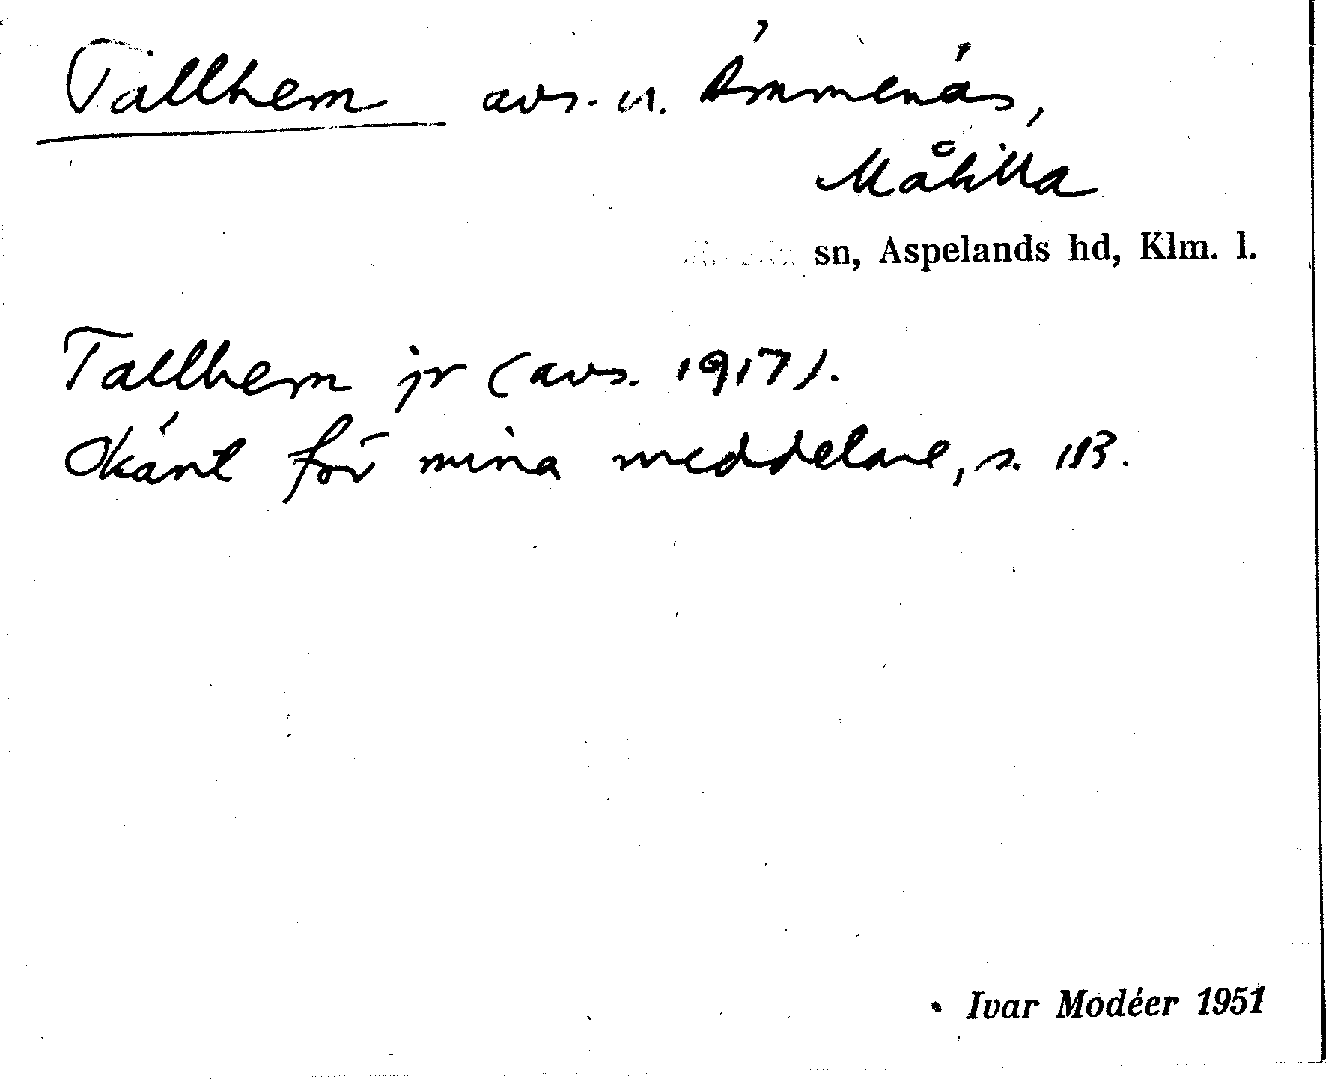 Tallhem avs. u. Ämmenäs,
Målilla
sn, Aspelands hd, Klm. l.
Tallhem jr (avs. 1917).
Okänt för mina meddelare, s. 113.
Ivar Modéer 1951